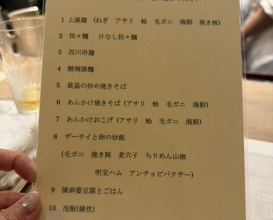 1 上湯麺 (ねぎ アサリ 蛤 毛ガニ 海鮮 焼き豚)
2 担々麺 汁なし担々麺
3 四川冷麺
4 酸辣湯麺
5 黄韮の炒め焼きそば
6 あんかけ焼きそば (アサリ 蛤 毛ガニ 海鮮)
7 あんかけおこげ (アサリ 蛤 毛ガニ 海鮮)
8 ザーサイと卵の炒飯
(毛ガニ 焼き豚 煮穴子 ちりめん山椒
明宝ハム アンチョビパクチー)
9 陳麻婆豆腐とごはん
10 泡飯(雑炊)